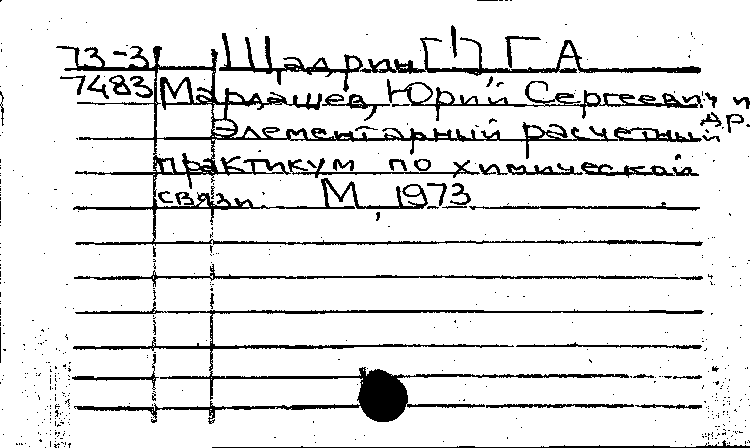 73-3 Щадрин[?] Г А
7483 Мардашев, Юрий Сергеевич и др.
Элементарный расчетный
практикум по химической
связи. М, 1973.